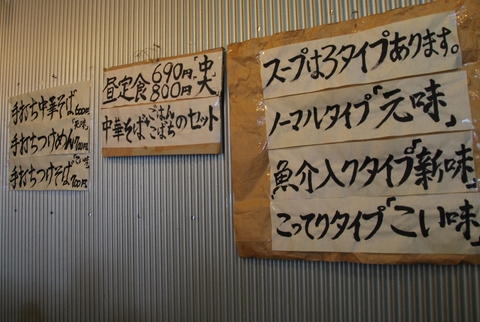 手打ち中華そば600円
手打ちつけめん700円
手打ちつけそば700円
昼定食 690円「中」
800円「大」
中華そば ごはん こばち のセット
スープは3タイプあります。
ノーマルタイプ「元味」
魚介入りタイプ「新味」
こってりタイプ「こい味」